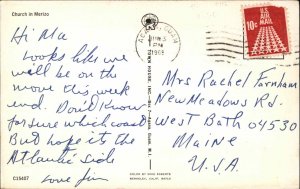 Church in Mexico
Hi Ma
Looks like we
will be on the
move this week
end. Don't Know
for sure which coast
But hope its the
Atlantic side
Love Jim
C15407
PM
1968
U.S.
AIR MAIL
10c
Mrs Rachel Farnham
New Meadows Rd.
West Bath 04530
Maine
U.S.A